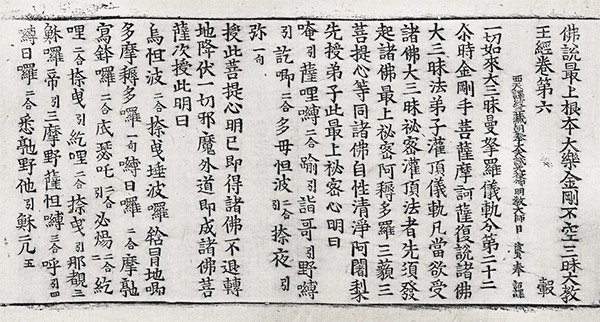 佛說最上根本大樂金剛不空三昧大教
王經卷第六 㲄
西天譯經三藏朝奉大夫試光祿卿明教大師臣法賢奉 詔譯
一切如來大三昧曼拏羅儀軌分第二十二
尒時金剛手菩薩摩訶薩復說諸佛
大三昧法弟子灌頂儀軌凡當欲受
諸佛大三昧祕密灌頂法者先須發
起諸佛最上祕密阿耨多羅三藐三
菩提心等同諸佛自性清淨阿闍梨
先授弟子此最上祕密心明曰
唵引薩哩嚩二合踰引誐哥引野嚩
引訖唧二合多毋怛波二合捺夜引
弥一句
授此菩提心明已即得諸佛不退轉
地降伏一切邪魔外道即成諸佛菩
薩次授此明曰
烏怛波二合捺曳埵波囉
多摩耨多囉一句嚩日囉二合摩𠰷
二合底瑟吒二合必
哩二合捺曳引紇哩二合捺曳引那
穌囉帝引三摩野薩怛嚩二合呼引四
嚩日囉二合悉𠰷野他引穌亢五